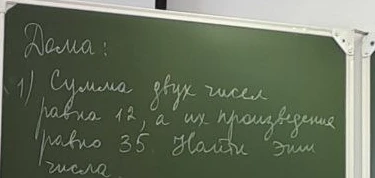 Дома:
1) Сумма двух чисел
равна 12, а их произведение
равно 35. Найти эти
числа.